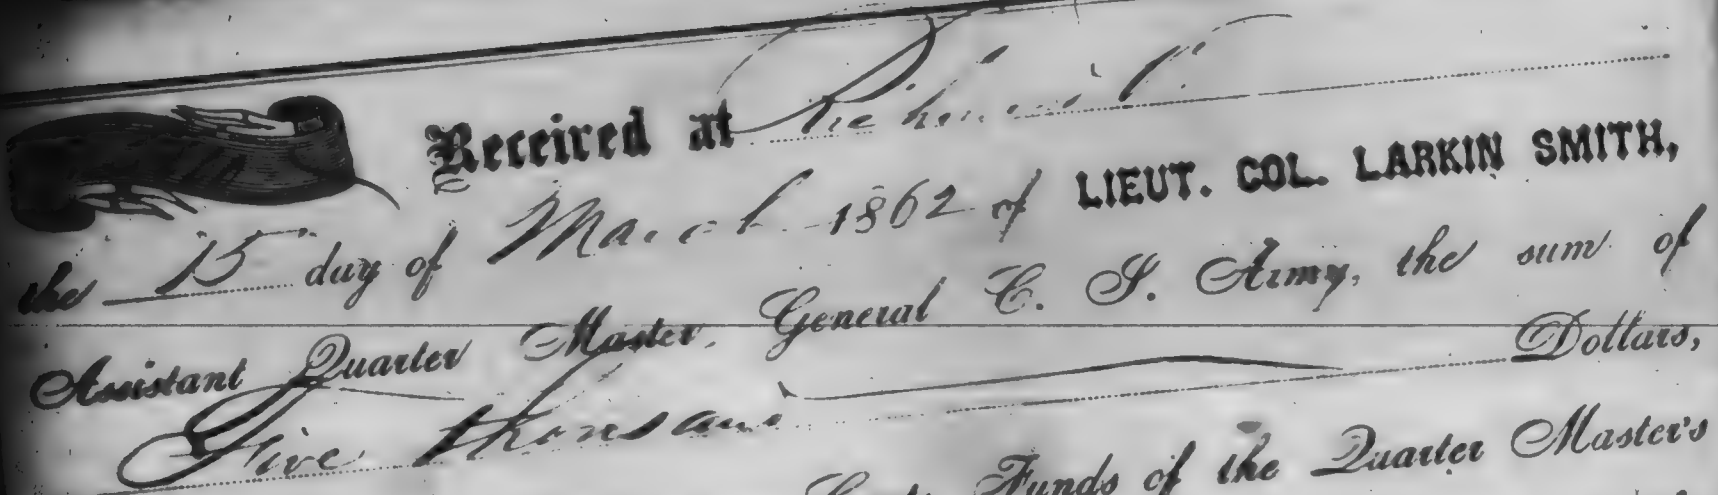 Received at
the 15 day of March 1862 of LIEUT. COL. LARKIN SMITH,
Assistant Quarter Master, General C. S. Army, the sum of
Five thousand Dollars,
Funds of the Quarter Master's